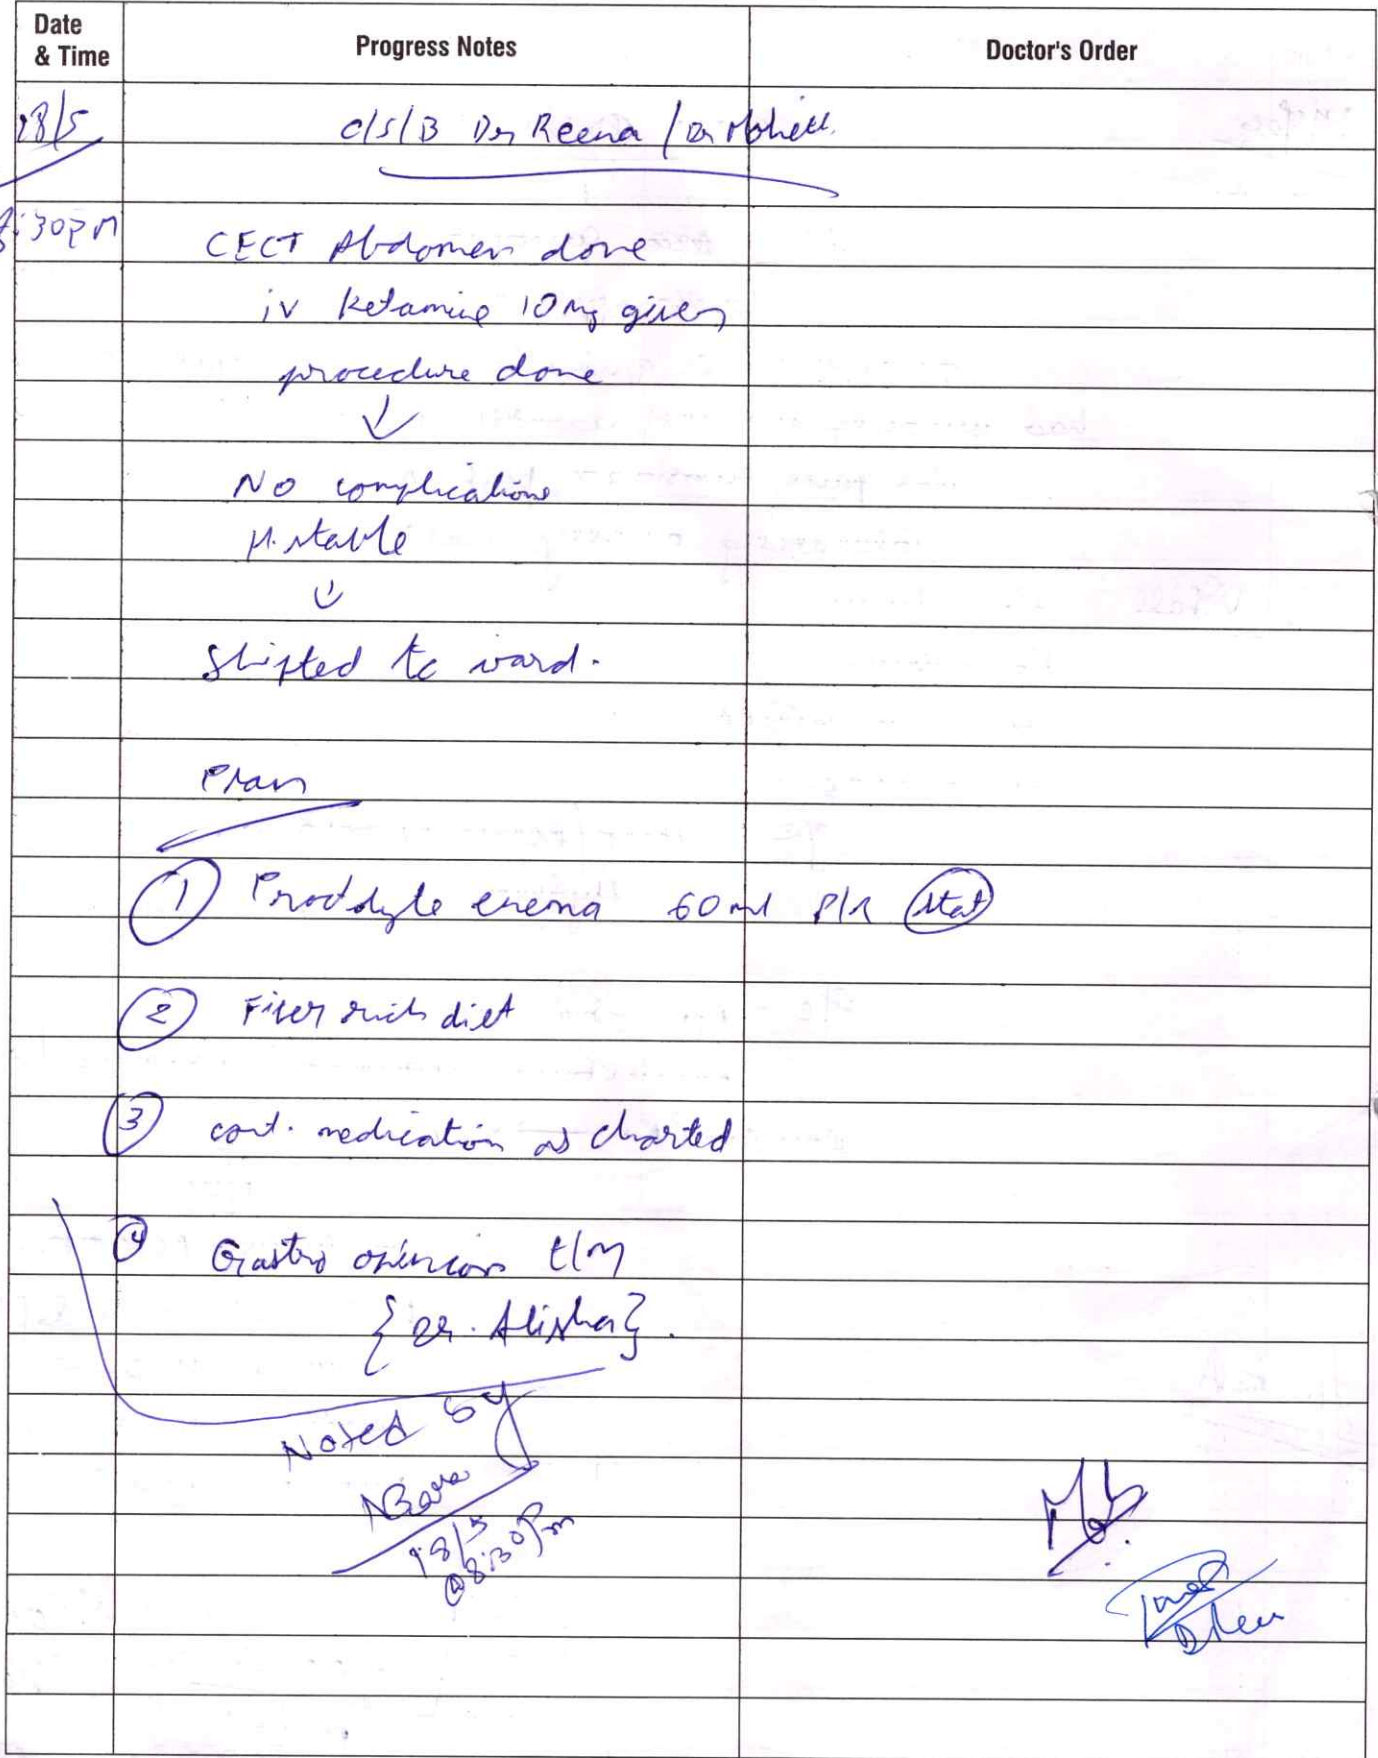 Date & Time
Progress Notes
Doctor's Order
28/5
c/s/B Dr Reena / Dr
:30pm
CECT Abdomen done
iv Ketamine 10mg given
procedure done
↓
No complications
H. stable
↓
Shifted to ward.
Plan
① enema 60ml P/R stat
② Fiber rich diet
③ cont. medication as charted
④ Gastro opinion t/m
{Dr. Alisha}.
Noted by
@8:30Pm